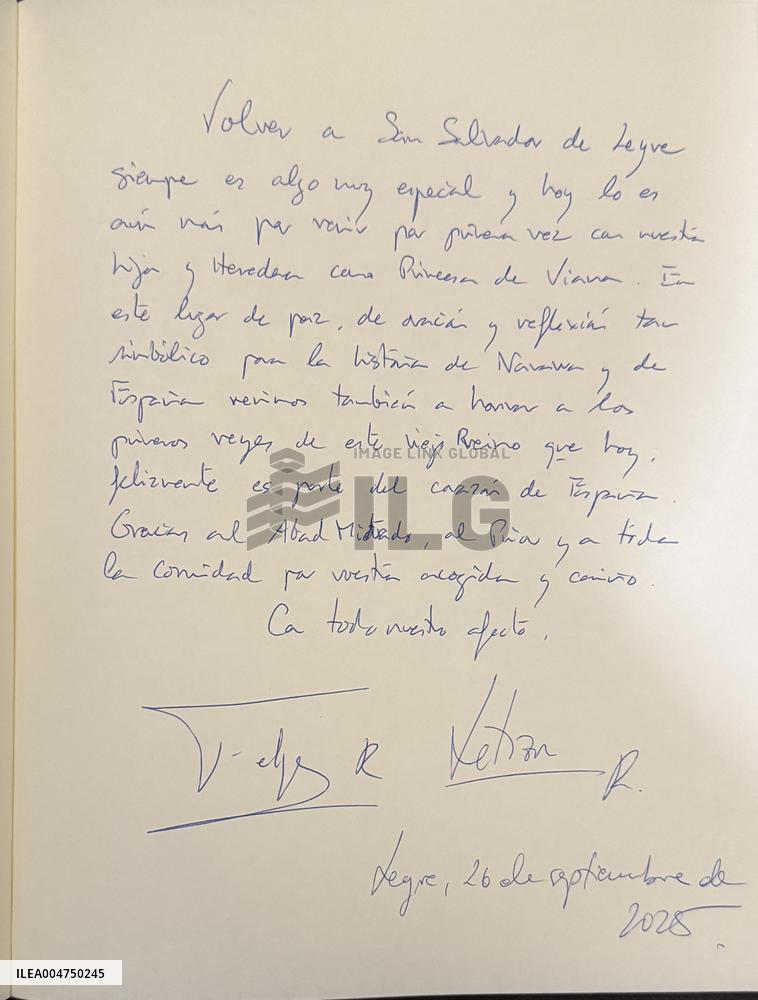 Volver a San Salvador de Leyre
siempre es algo muy especial y hoy lo es
aún más por venir por primera vez con nuestra
hija y Heredera como Princesa de Viana. En
este lugar de paz, de oración y reflexión tan
simbólico para la historia de Navarra y de
España venimos también a honrar a los
primeros reyes de este viejo Reino que hoy,
IMAGE LINK GLOBAL
felizmente es parte del corazón de España.
ILG
Gracias al Abad Mitrado, al Prior y a toda
la comunidad por vuestra acogida y cariño.
Con todo nuestro afecto,
Felipe R
Letizia R.
Leyre, 26 de septiembre de
2025.
ILEA004750245